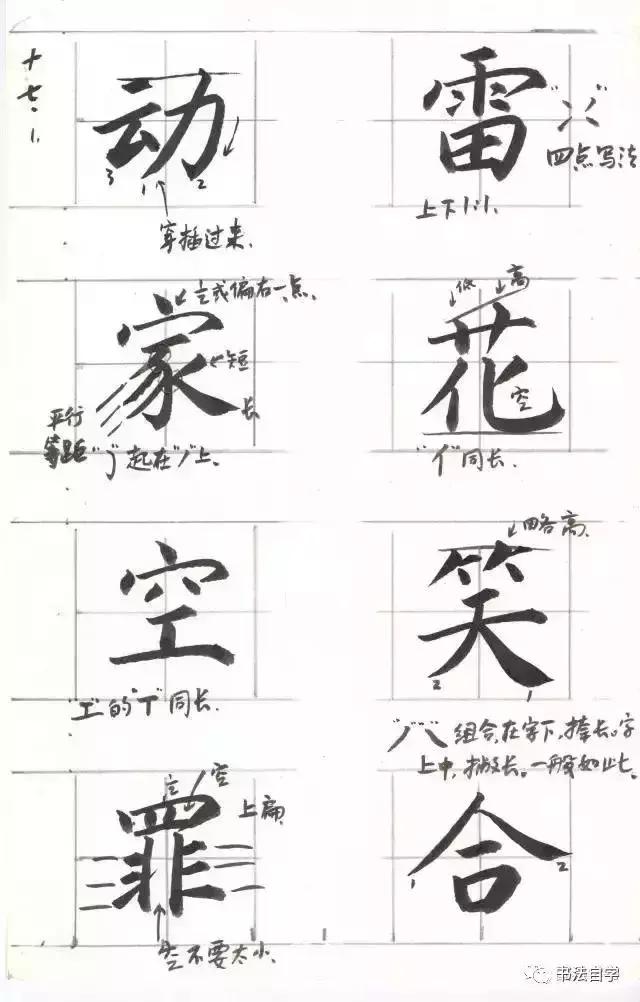 十七.1.
动
3 1 2
穿插过来.
雷
四点写法
上下1:1.
家
立式偏右一点.
短
长
平行
等距
起在"丿"上.
花
低 高
空
"亻"同长.
空
"工"的"丅"同长.
笑
略高.
2 1
"八"组合,在字下,捺长。字
上中,撇长。一般如此。
罪
空
上扁
空不要太小.
合
1 2
书法自学